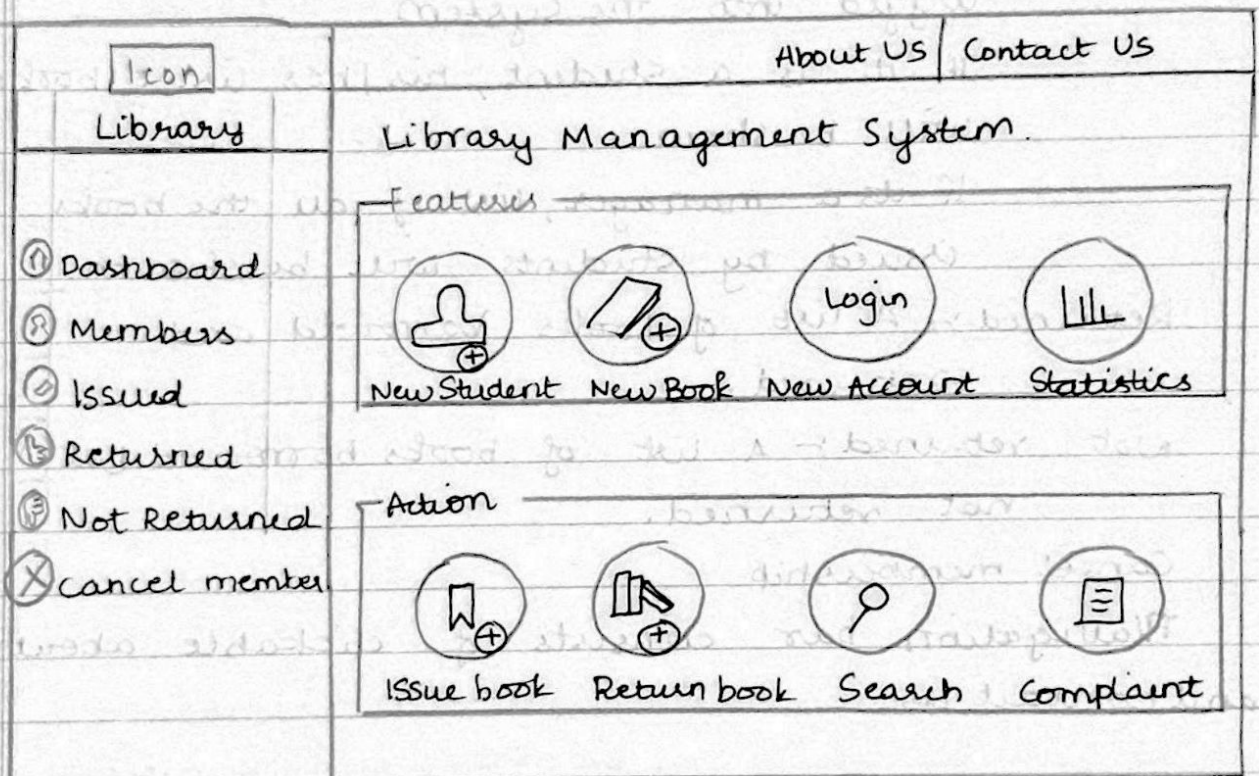 Icon
Library
About Us
Contact Us
Library Management System.
Features
Dashboard
Members
Issued
Returned
Not Returned
Cancel member
New Student
New Book
Login
New Account
Statistics
Action
Issue book
Return book
Search
Complaint